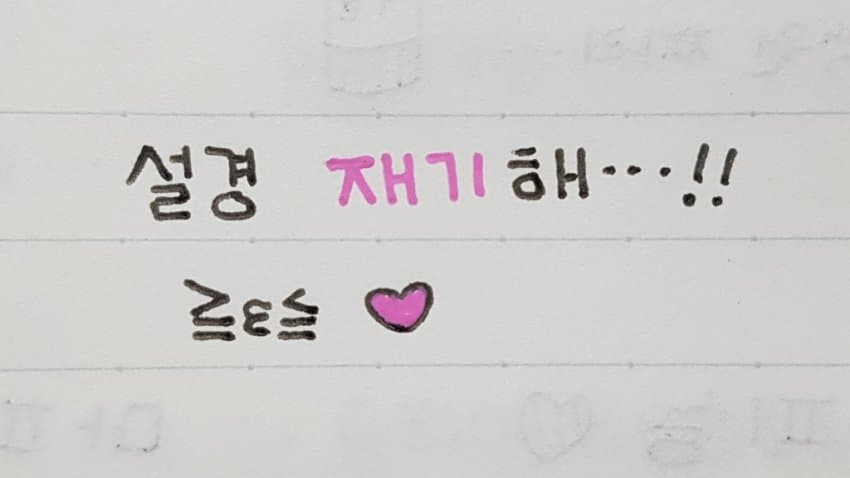 설경 재기해…!!
≧ε≦ ♥